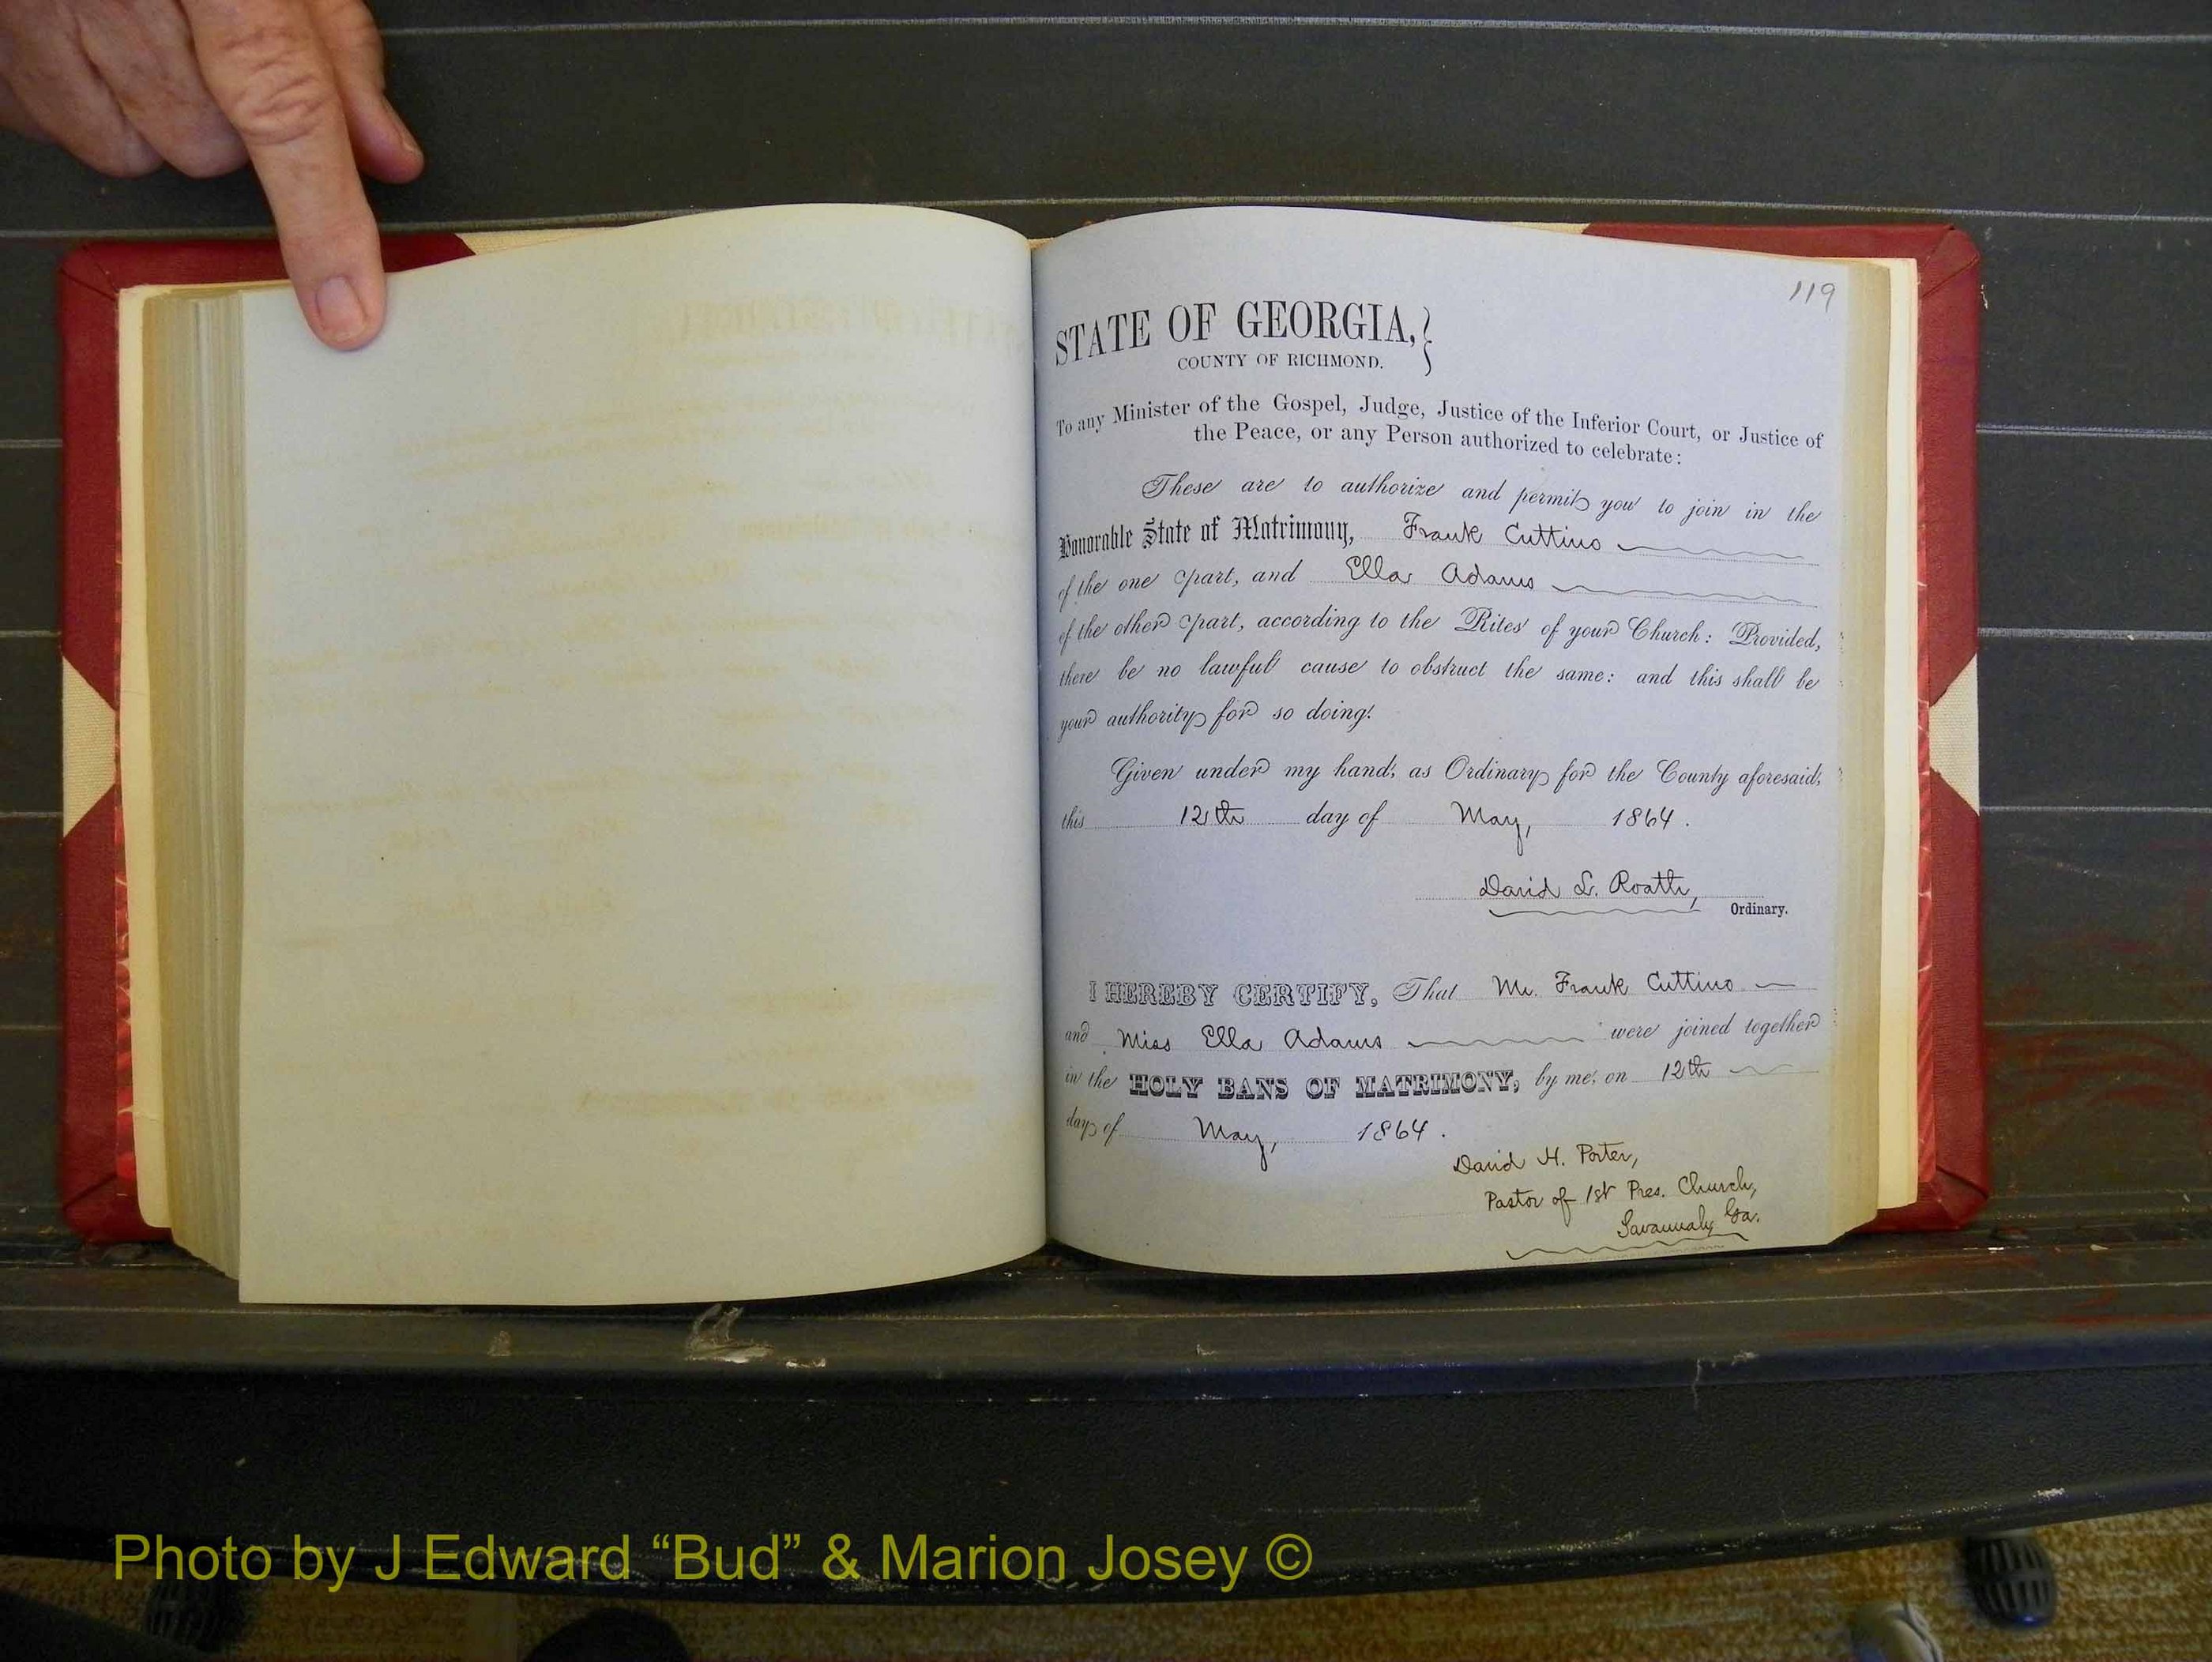 119
STATE OF GEORGIA,
COUNTY OF RICHMOND.
To any Minister of the Gospel, Judge, Justice of the Inferior Court, or Justice of
the Peace, or any Person authorized to celebrate:
These are to authorize and permit you to join in the
Honorable State of Matrimony, Frank Cuttino
of the one part, and Ella Adams
of the other part, according to the Rites of your Church: Provided,
there be no lawful cause to obstruct the same: and this shall be
your authority for so doing.
Given under my hand, as Ordinary for the County aforesaid,
this 12th day of May, 1864.
David L. Roath,
Ordinary.
I HEREBY CERTIFY, That Mr. Frank Cuttino
and Miss Ella Adams were joined together
in the HOLY BANS OF MATRIMONY, by me, on 12th
day of May, 1864.
David H. Porter,
Pastor of 1st Pres. Church,
Savannah, Ga.
Photo by J Edward “Bud” & Marion Josey ©